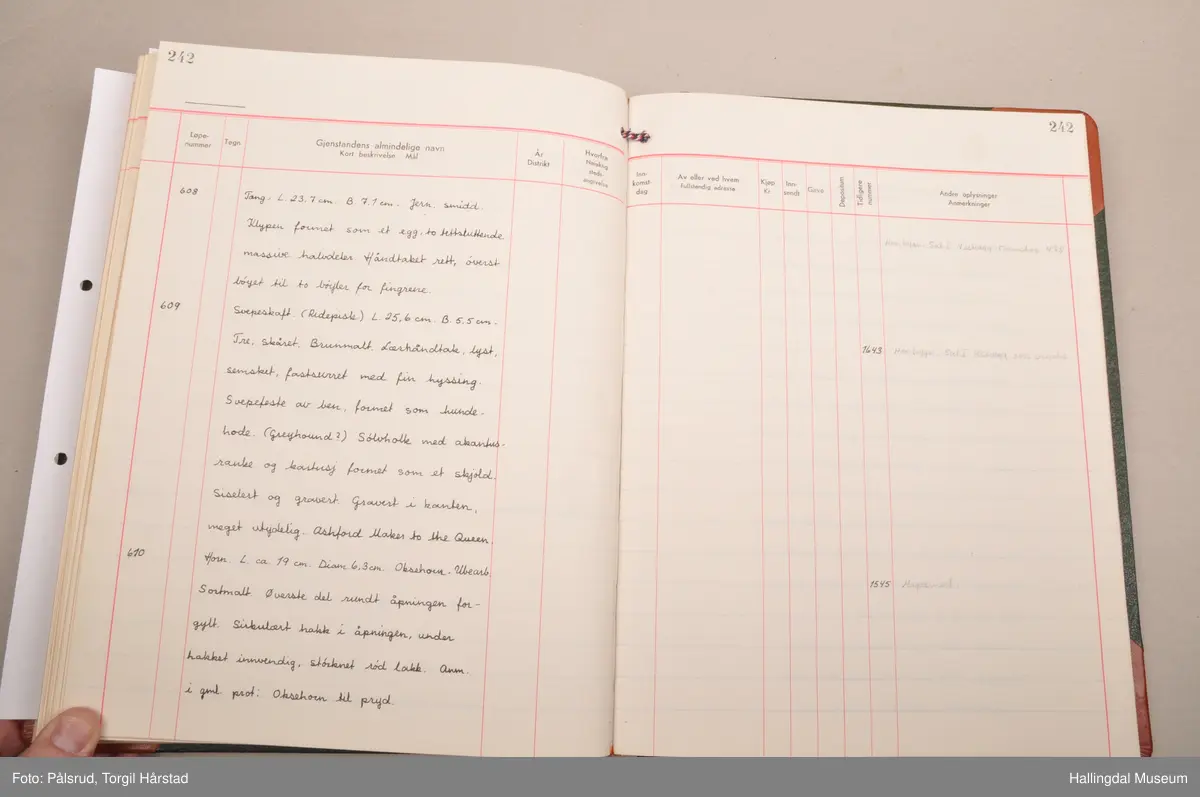 242
Løpe-
nummer
Tegn.
Gjenstandens almindelige navn
Kort beskrivelse Mål
År
Distrikt
Hvorfra
Nøiaktig
steds-
angivelse
608
Tang. L. 23.7 cm. B 7.1 cm. Jern. smidd.
Klypen formet som et egg, to tettsluttende
massive halvdeler Håndtaket rett, øverst
bøyet til to bøyler for fingrene.
609
Svepeskaft. (Ridepisk) L. 25,6 cm. B. 5,5 cm.
Tre, skåret. Brunmalt. Lærhåndtak, lyst,
semsket, fastsurret med fin hyssing.
Svepefeste av ben, formet som hunde-
hode. (Greyhound?) Sølvholk med akantus-
ranke og kartusj formet som et skjold.
Siselert og gravert. Gravert i kanten,
meget utydelig. Ashford Maker to the Queen.
610
Horn. L. ca. 19 cm. Diam 6,3 cm. Oksehorn. Ubearb.
Sortmalt Øverste del rundt åpningen for-
gylt. Sirkulært hakk i åpningen, under
hakket innvendig, størknet rød lakk. Anm.
i gml. prot: Oksehorn til pryd.
242
Inn-
komst-
dag
Av eller ved hvem
fullstendig adresse
Kjøp
Kr.
Inn-
sendt
Gave
Depositum
Tidligere
nummer
Andre oplysninger
Anmerkninger
1643
1545
Foto: Pålsrud, Torgil Hårstad
Hallingdal Museum